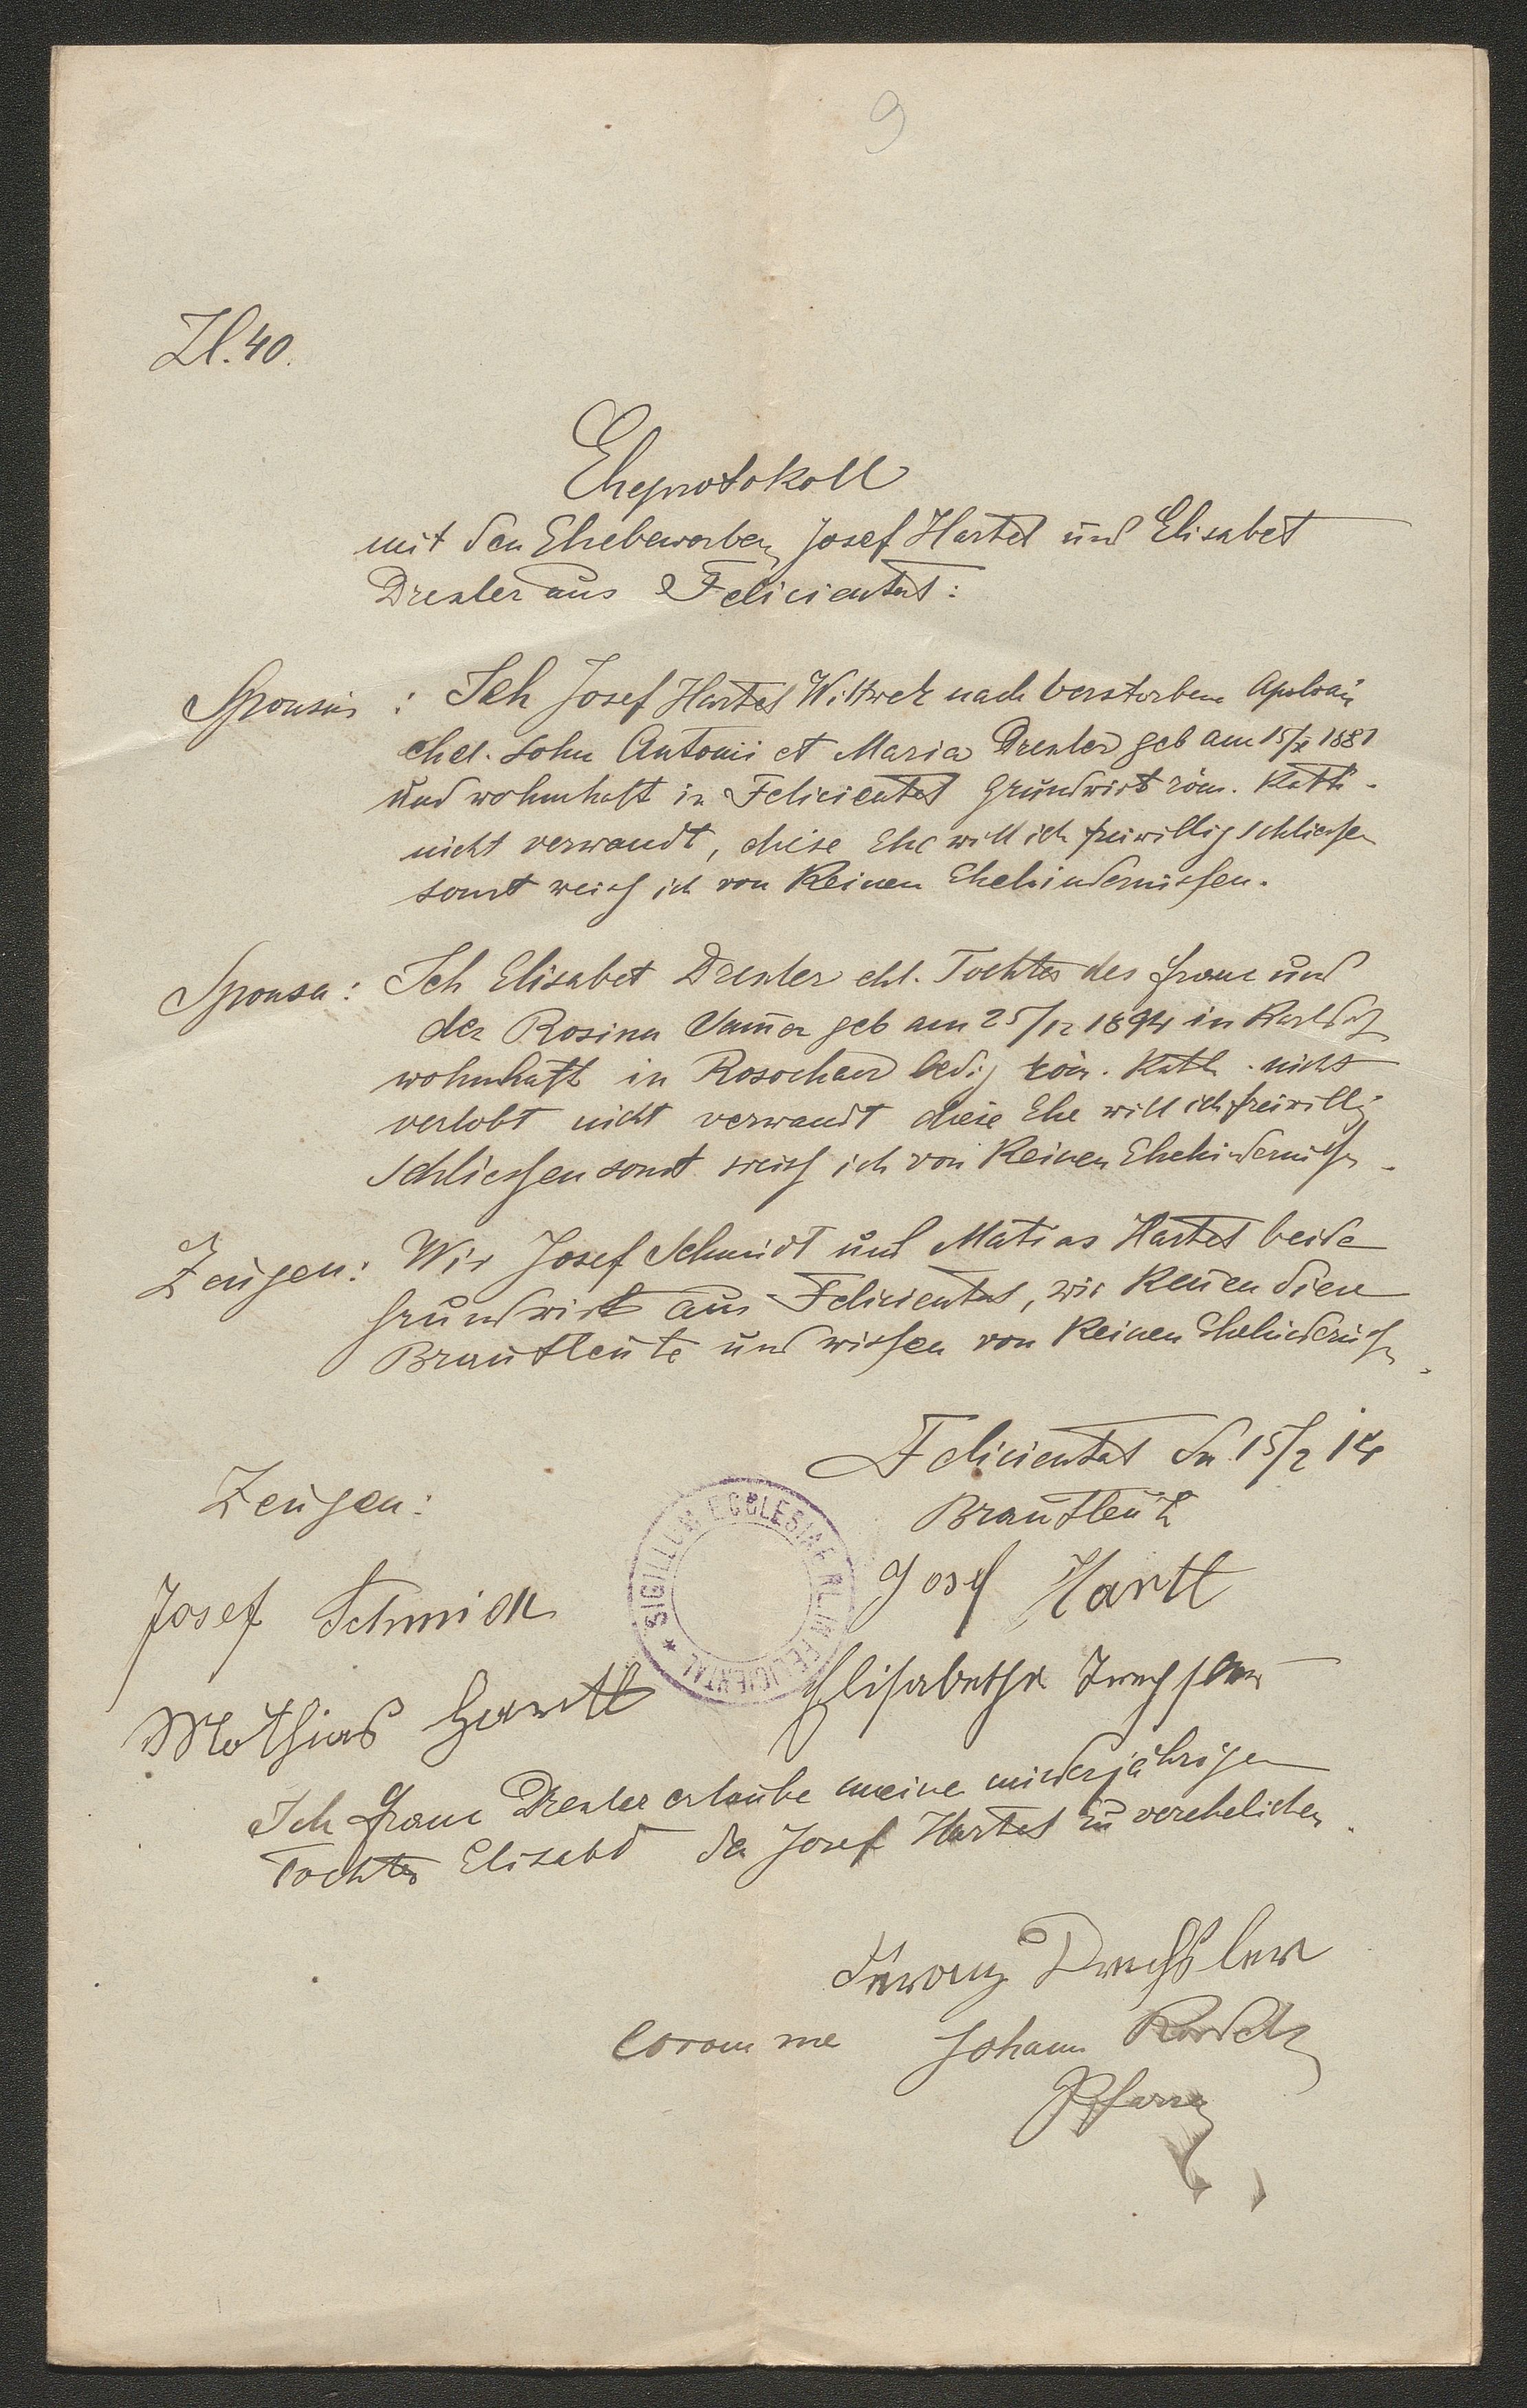 9
Zl. 40.
Eheprotokoll
mit den Ehebewerben Josef Hartel und Elisabet
Drexler aus Felicientat:
Sponsus : Ich Josef Hartel Wittwer nach verstorbene
ehel. Sohn Antonii et Maria Drexler geb am 15/X 1881
und wohnhaft in Felicientat Grundwirt röm. Kath.
nicht verwandt, diese Ehe will ich freiwillig schliessen
sonst weiss ich von Keinen Ehehindernissen.
Sponsa: Ich Elisabet Drexler ehl. Tochter des Franz und
der Rosina geb am 25/12 1894 in
wohnhaft in Rosochacz ledig röm. Kath. nicht
verlobt nicht verwandt diese Ehe will ich freiwillig
schliessen sonst weiss ich von Keinen Ehehindernissen.
Zeugen: Wir Josef Schmidt und Matias Hartel beide
Grundwirte aus Felicientat, wir Kennen diese
Brautleute und wissen von Keinen Ehehindernissen.
Felicientat dn 15/2 14
Zeugen:
Brautleute
SIGILLUM ECCLESIAE R.L. IN FELICIENTAL
Josef Hartl
Josef Schmidt
Elisabetha Drechsler
Mathias Hartl
Ich Franz Drexler erlaube meine minderjährigen
Tochter Elisabet den Josef Hartel zu verehelichen.
Franz Drechsler
Coram me Johann
Pfarrer